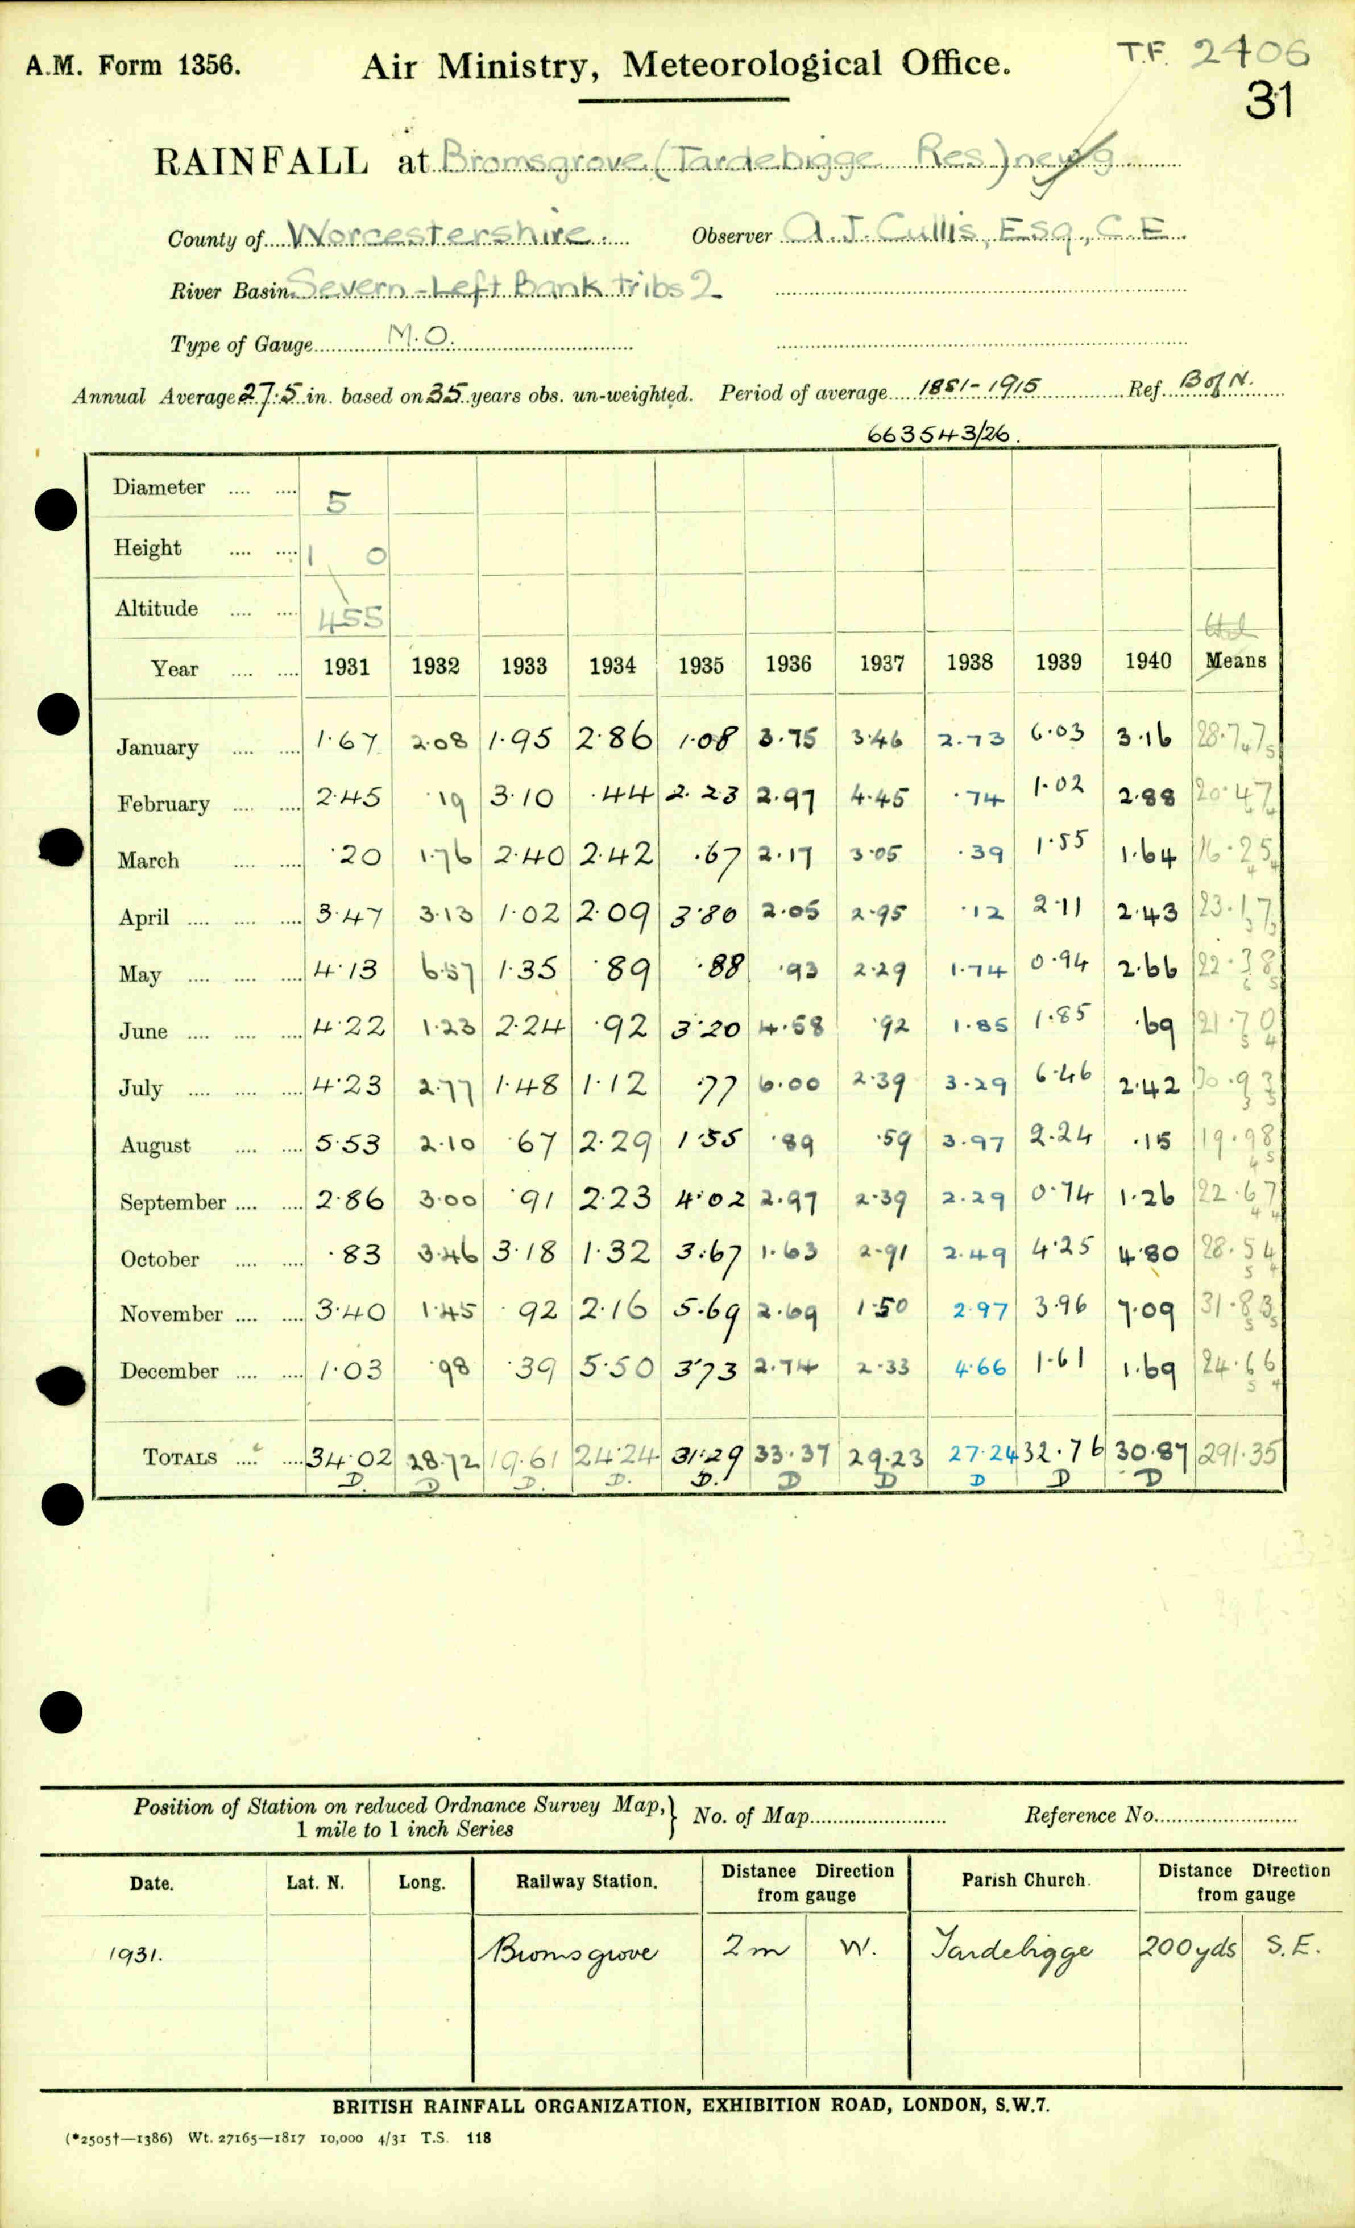 T.F. 2406
A.M. Form 1356. Air Ministry, Meteorological Office.
31
RAINFALL at Bromsgrove (Tardebigge Res) new g
County of Worcestershire. Observer A. J. Cullis, Esq., C.E.
River Basin Severn - Left Bank tribs 2
Type of Gauge M.O.
Annual Average 27.5 in. based on 35 years obs. un-weighted. Period of average 1881-1915 Ref. B of N.
663543/26.
Diameter 5
Height 1 0
Altitude 455
Year 1931 1932 1933 1934 1935 1936 1937 1938 1939 1940 Means
January 1.67 2.08 1.95 2.86 1.08 3.75 3.46 2.73 6.03 3.16 28.77
February 2.45 .19 3.10 .44 2.23 2.97 4.45 .74 1.02 2.88 20.47
March .20 1.76 2.40 2.42 .67 2.17 3.05 .39 1.55 1.64 16.25
April 3.47 3.13 1.02 2.09 3.80 2.05 2.95 .12 2.11 2.43 23.17
May 4.13 6.57 1.35 .89 .88 .93 2.29 1.74 0.94 2.66 22.38
June 4.22 1.23 2.24 .92 3.20 4.58 .92 1.85 1.85 .69 21.70
July 4.23 2.77 1.48 1.12 .77 6.00 2.39 3.29 6.46 2.42 30.93
August 5.53 2.10 .67 2.29 1.55 .89 .59 3.97 2.24 .15 19.98
September 2.86 3.00 .91 2.23 4.02 2.97 2.39 2.29 0.74 1.26 22.67
October .83 3.46 3.18 1.32 3.67 1.63 2.91 2.49 4.25 4.80 28.54
November 3.40 1.45 .92 2.16 5.69 2.69 1.50 2.97 3.96 7.09 31.83
December 1.03 .98 .39 5.50 3.73 2.74 2.33 4.66 1.61 1.69 24.66
TOTALS 34.02 28.72 19.61 24.24 31.29 33.37 29.23 27.24 32.76 30.87 291.35
D. D D. D. D. D D D D D
Position of Station on reduced Ordnance Survey Map, } No. of Map Reference No.
1 mile to 1 inch Series
Date. Lat. N. Long. Railway Station. Distance Direction from gauge Parish Church. Distance Direction from gauge
1931. Bromsgrove 2 m W. Tardebigge 200 yds S.E.
BRITISH RAINFALL ORGANIZATION, EXHIBITION ROAD, LONDON, S.W.7.
(*2505†—1386) Wt. 27165—1817 10,000 4/31 T.S. 118